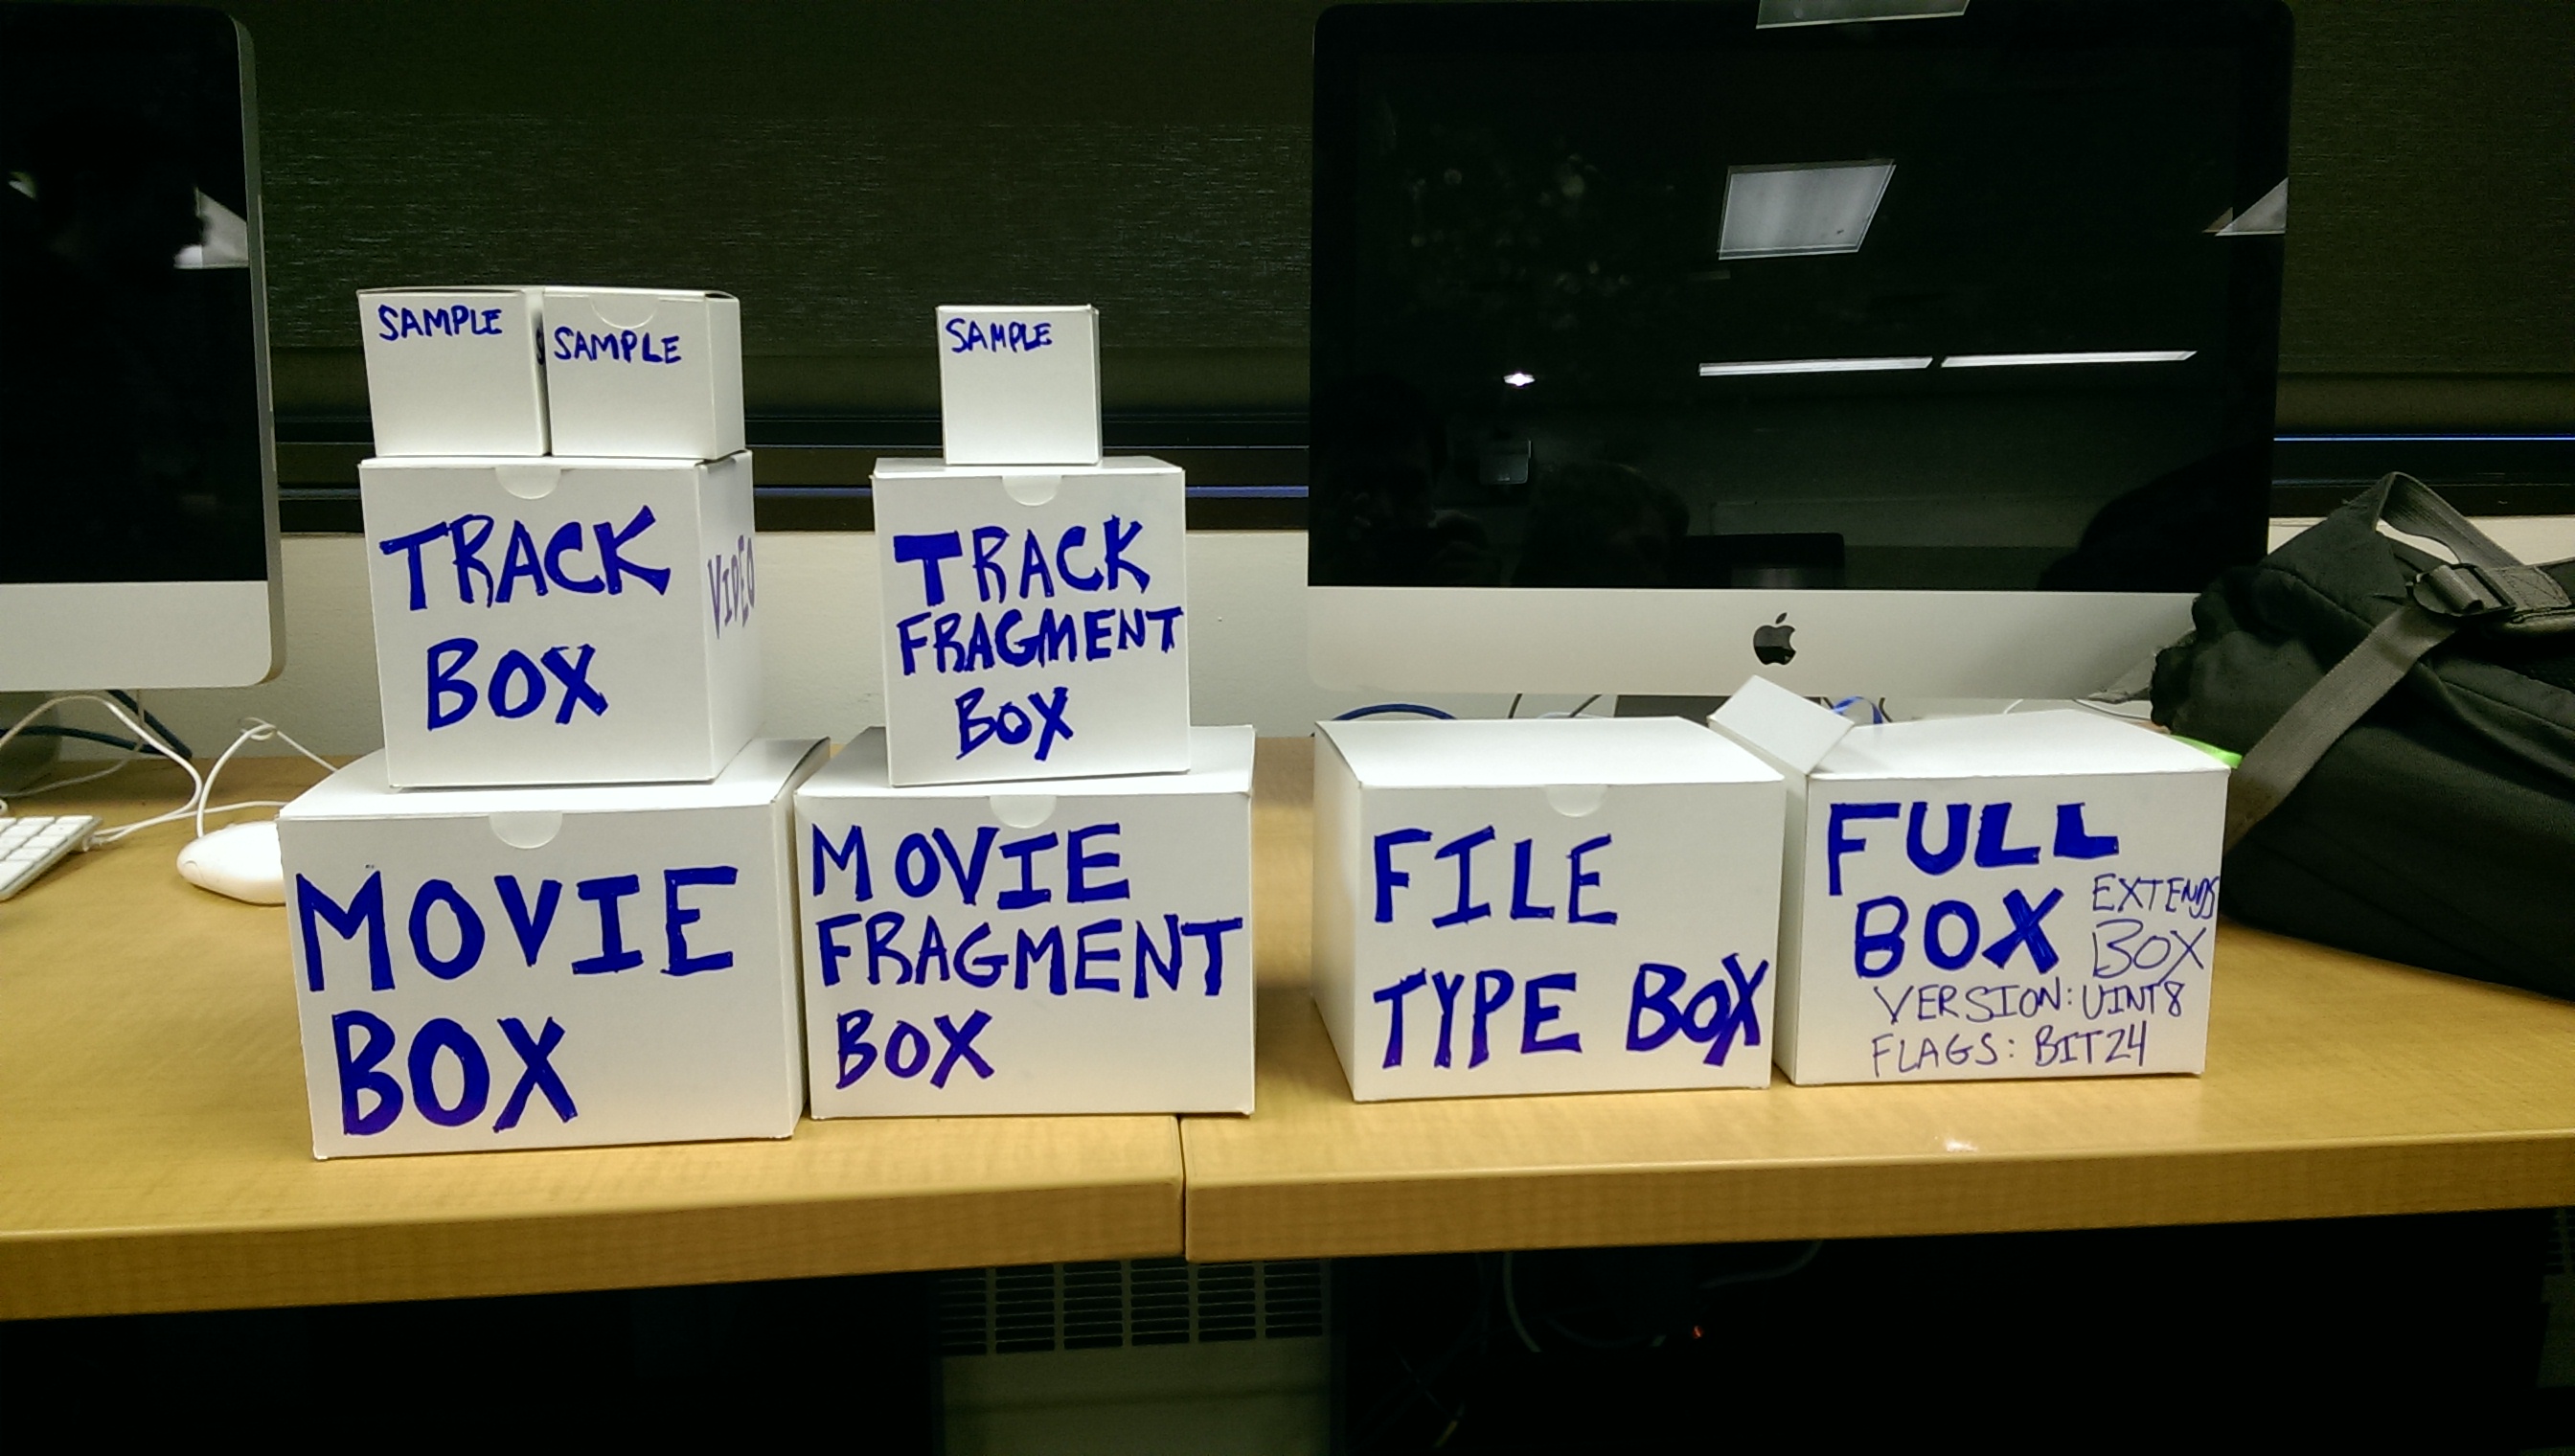 SAMPLE
SAMPLE
TRACK
BOX
VIDEO
MOVIE
BOX
SAMPLE
TRACK
FRAGMENT
BOX
MOVIE
FRAGMENT
BOX
FILE
TYPE BOX
FULL
BOX EXTENDS
BOX
VERSION: UINT8
FLAGS: BIT24